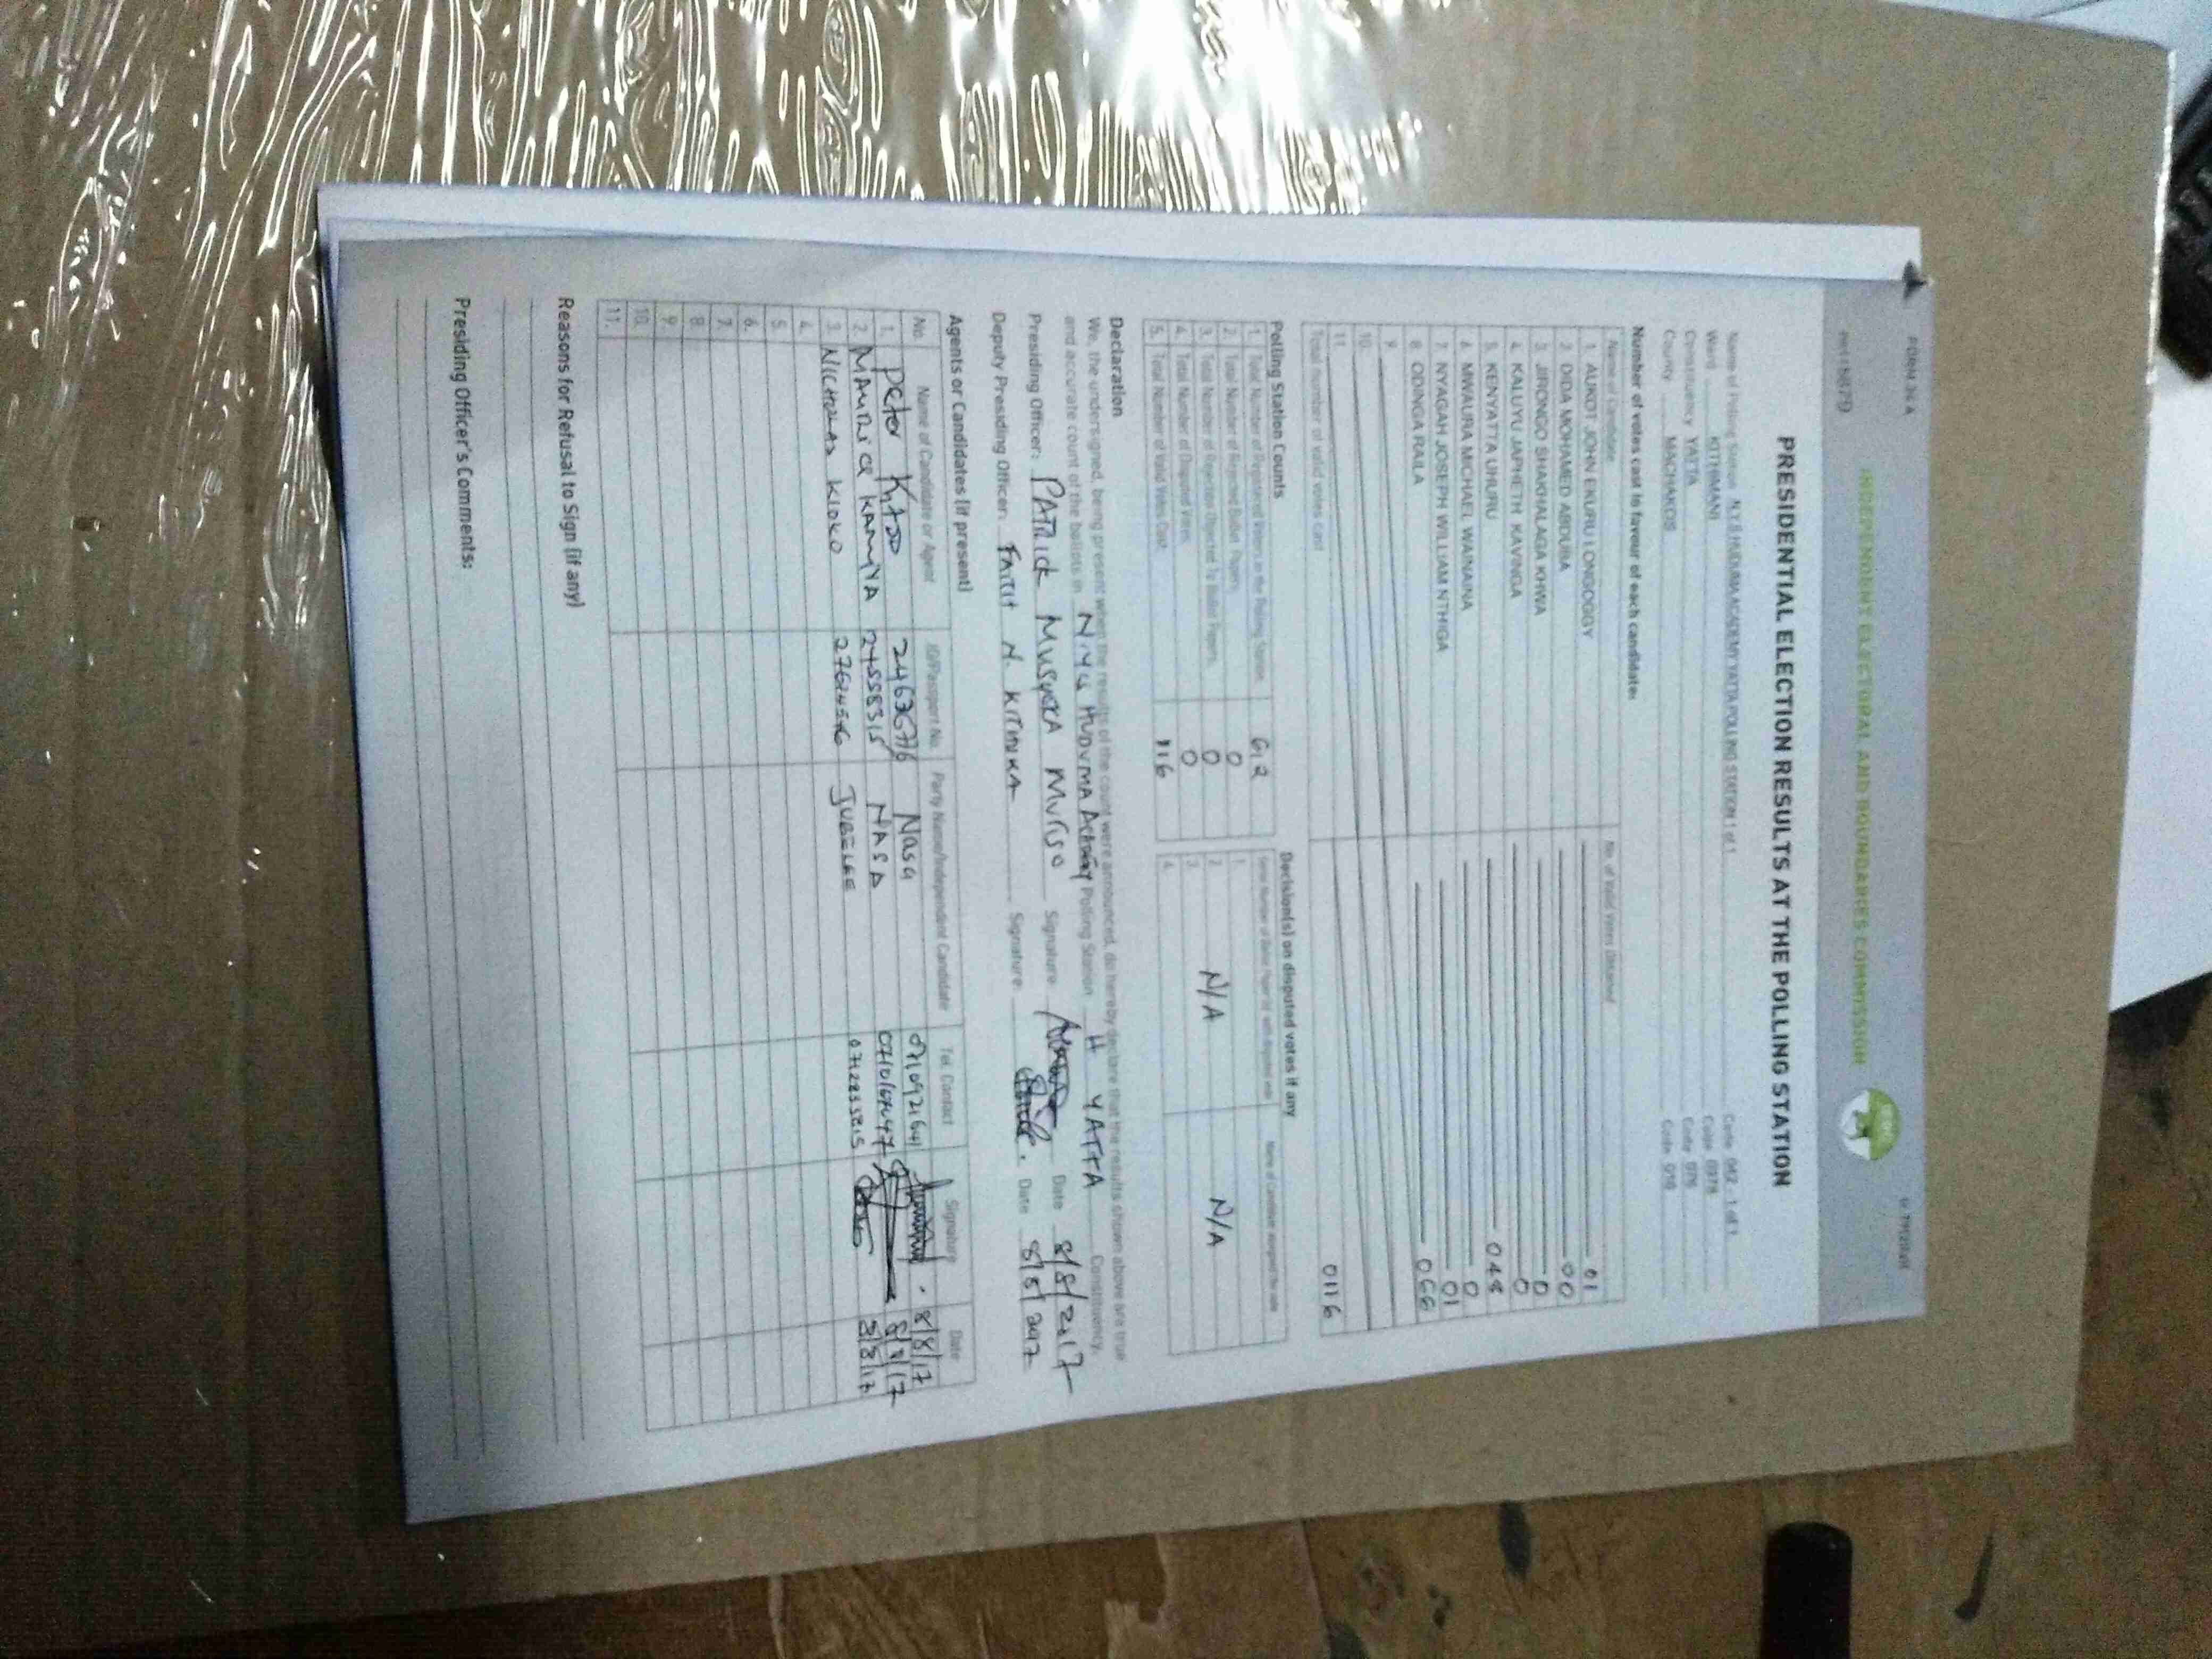 FORM 34 A
INDEPENDENT ELECTORAL AND BOUNDARIES COMMISSION
PRESIDENTIAL ELECTION RESULTS AT THE POLLING STATION
Name of Polling Station N.Y.S HUDUMA ACADEMY YATTA POLLING STATION 1 of 1 Code 1 of 1
Ward KITHIMANI Code
Constituency YATTA Code
County MACHAKOS Code
Number of votes cast in favour of each candidate:
Name of Candidate No. of Valid Votes Obtained
1. AUKOT JOHN EKURU LONGOGGY 01
2. DIDA MOHAMED ABDUBA 00
3. JIRONGO SHAKHALAGA KHWA 0
4. KALUYU JAPHETH KAVINGA 0
5. KENYATTA UHURU 048
6. MWAURA MICHAEL WAINAINA 0
7. NYAGAH JOSEPH WILLIAM NTHIGA 01
8. ODINGA RAILA 066
9.
10.
11.
Total number of valid votes cast 0116
Polling Station Counts
1. Total Number of Registered Voters in the Polling Station 612
2. Total Number of Rejected Ballot Papers 0
3. Total Number of Rejection Objected To Ballot Papers 0
4. Total Number of Disputed Votes 0
5. Total Number of Valid Votes Cast 116
Decision(s) on disputed votes if any
1.
2. N/A N/A
3.
4.
Declaration
We, the undersigned, being present when the results of the count were announced, do hereby declare that the results shown above are true
and accurate count of the ballots in HUDUMA ACADEMY Polling Station YATTA Constituency.
Presiding Officer: PATRICK MUSYOKA Signature Date 8/8/2017
Deputy Presiding Officer: FAITH N. Signature Date 8/8/2017
Agents or Candidates (if present)
No. Name of Candidate or Agent ID/Passport No. Party Name/Independent Candidate Tel. Contact Signature Date
1. Peter Nasa 8/8/17
2. MAURICE 24558315 NASA 8/8/17
3. NICHOLAS KIOKO JUBILEE 8/8/17
4.
5.
6.
7.
8.
9.
10.
11.
Reasons for Refusal to Sign (if any)
Presiding Officer's Comments: